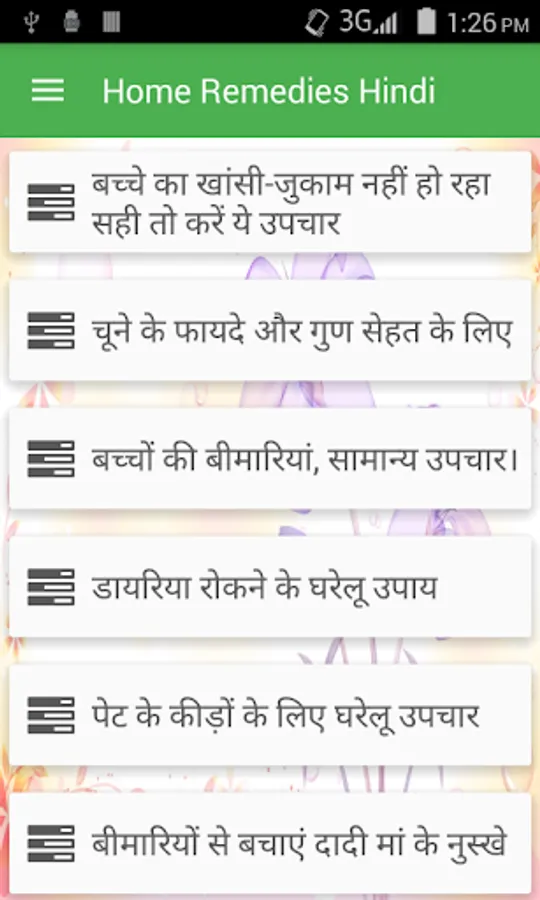 3G 1:26 PM
Home Remedies Hindi
बच्चे का खांसी-जुकाम नहीं हो रहा
सही तो करें ये उपचार
चूने के फायदे और गुण सेहत के लिए
बच्चों की बीमारियां, सामान्य उपचार।
डायरिया रोकने के घरेलू उपाय
पेट के कीड़ों के लिए घरेलू उपचार
बीमारियों से बचाएं दादी मां के नुस्खे